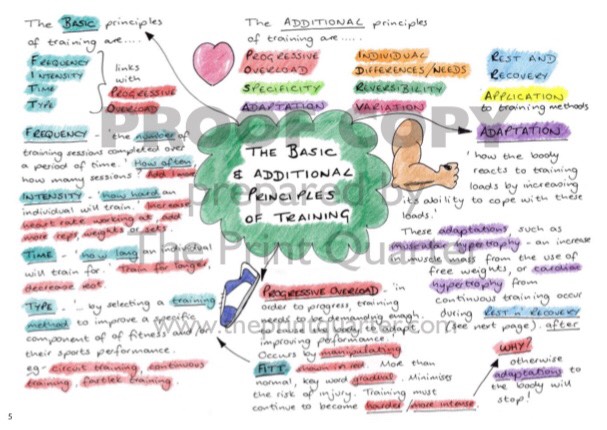 The BASIC principles
of training are....
FREQUENCY
INTENSITY
TIME
TYPE
links
with
PROGRESSIVE
OVERLOAD
The ADDITIONAL principles
of training are.....
PROGRESSIVE
OVERLOAD
SPECIFICITY
ADAPTATION
INDIVIDUAL
DIFFERENCES/NEEDS
REVERSIBILITY
VARIATION
REST AND
RECOVERY
APPLICATION
to training methods
PROOF COPY
prepared by
The Print Quarter
www.theprintquarter.com
THE BASIC
& ADDITIONAL
PRINCIPLES
OF TRAINING
FREQUENCY - 'the number of
training sessions completed over
a period of time.' How often,
how many sessions? Add 1 more
INTENSITY - 'how hard an
individual will train.' Increase
heart rate working at, add
more reps, weights or sets.
TIME - 'how long an individual
will train for.' Train for longer,
decrease rest.
TYPE - 'by selecting a training
method to improve a specific
component of of fitness and
their sports performance.
eg- circuit training, continuous
training, fartlek training.
PROGRESSIVE OVERLOAD - 'in
order to progress, training
needs to be demanding enough
body to adapt,
improving performance.
Occurs by manipulating
FITT shown in red. More than
normal, key word gradual. Minimises
the risk of injury. Training must
continue to become harder/more intense
ADAPTATION
'how the body
reacts to training
loads by increasing
its ability to cope with these
loads.'
These adaptations such as
muscular hypertrophy - an increase
in muscle mass from the use of
free weights, or cardiac
hypertrophy from
continuous training occur
during REST n' RECOVERY
(see next page). after
WHY?
otherwise
adaptation to
the body will
stop!
5